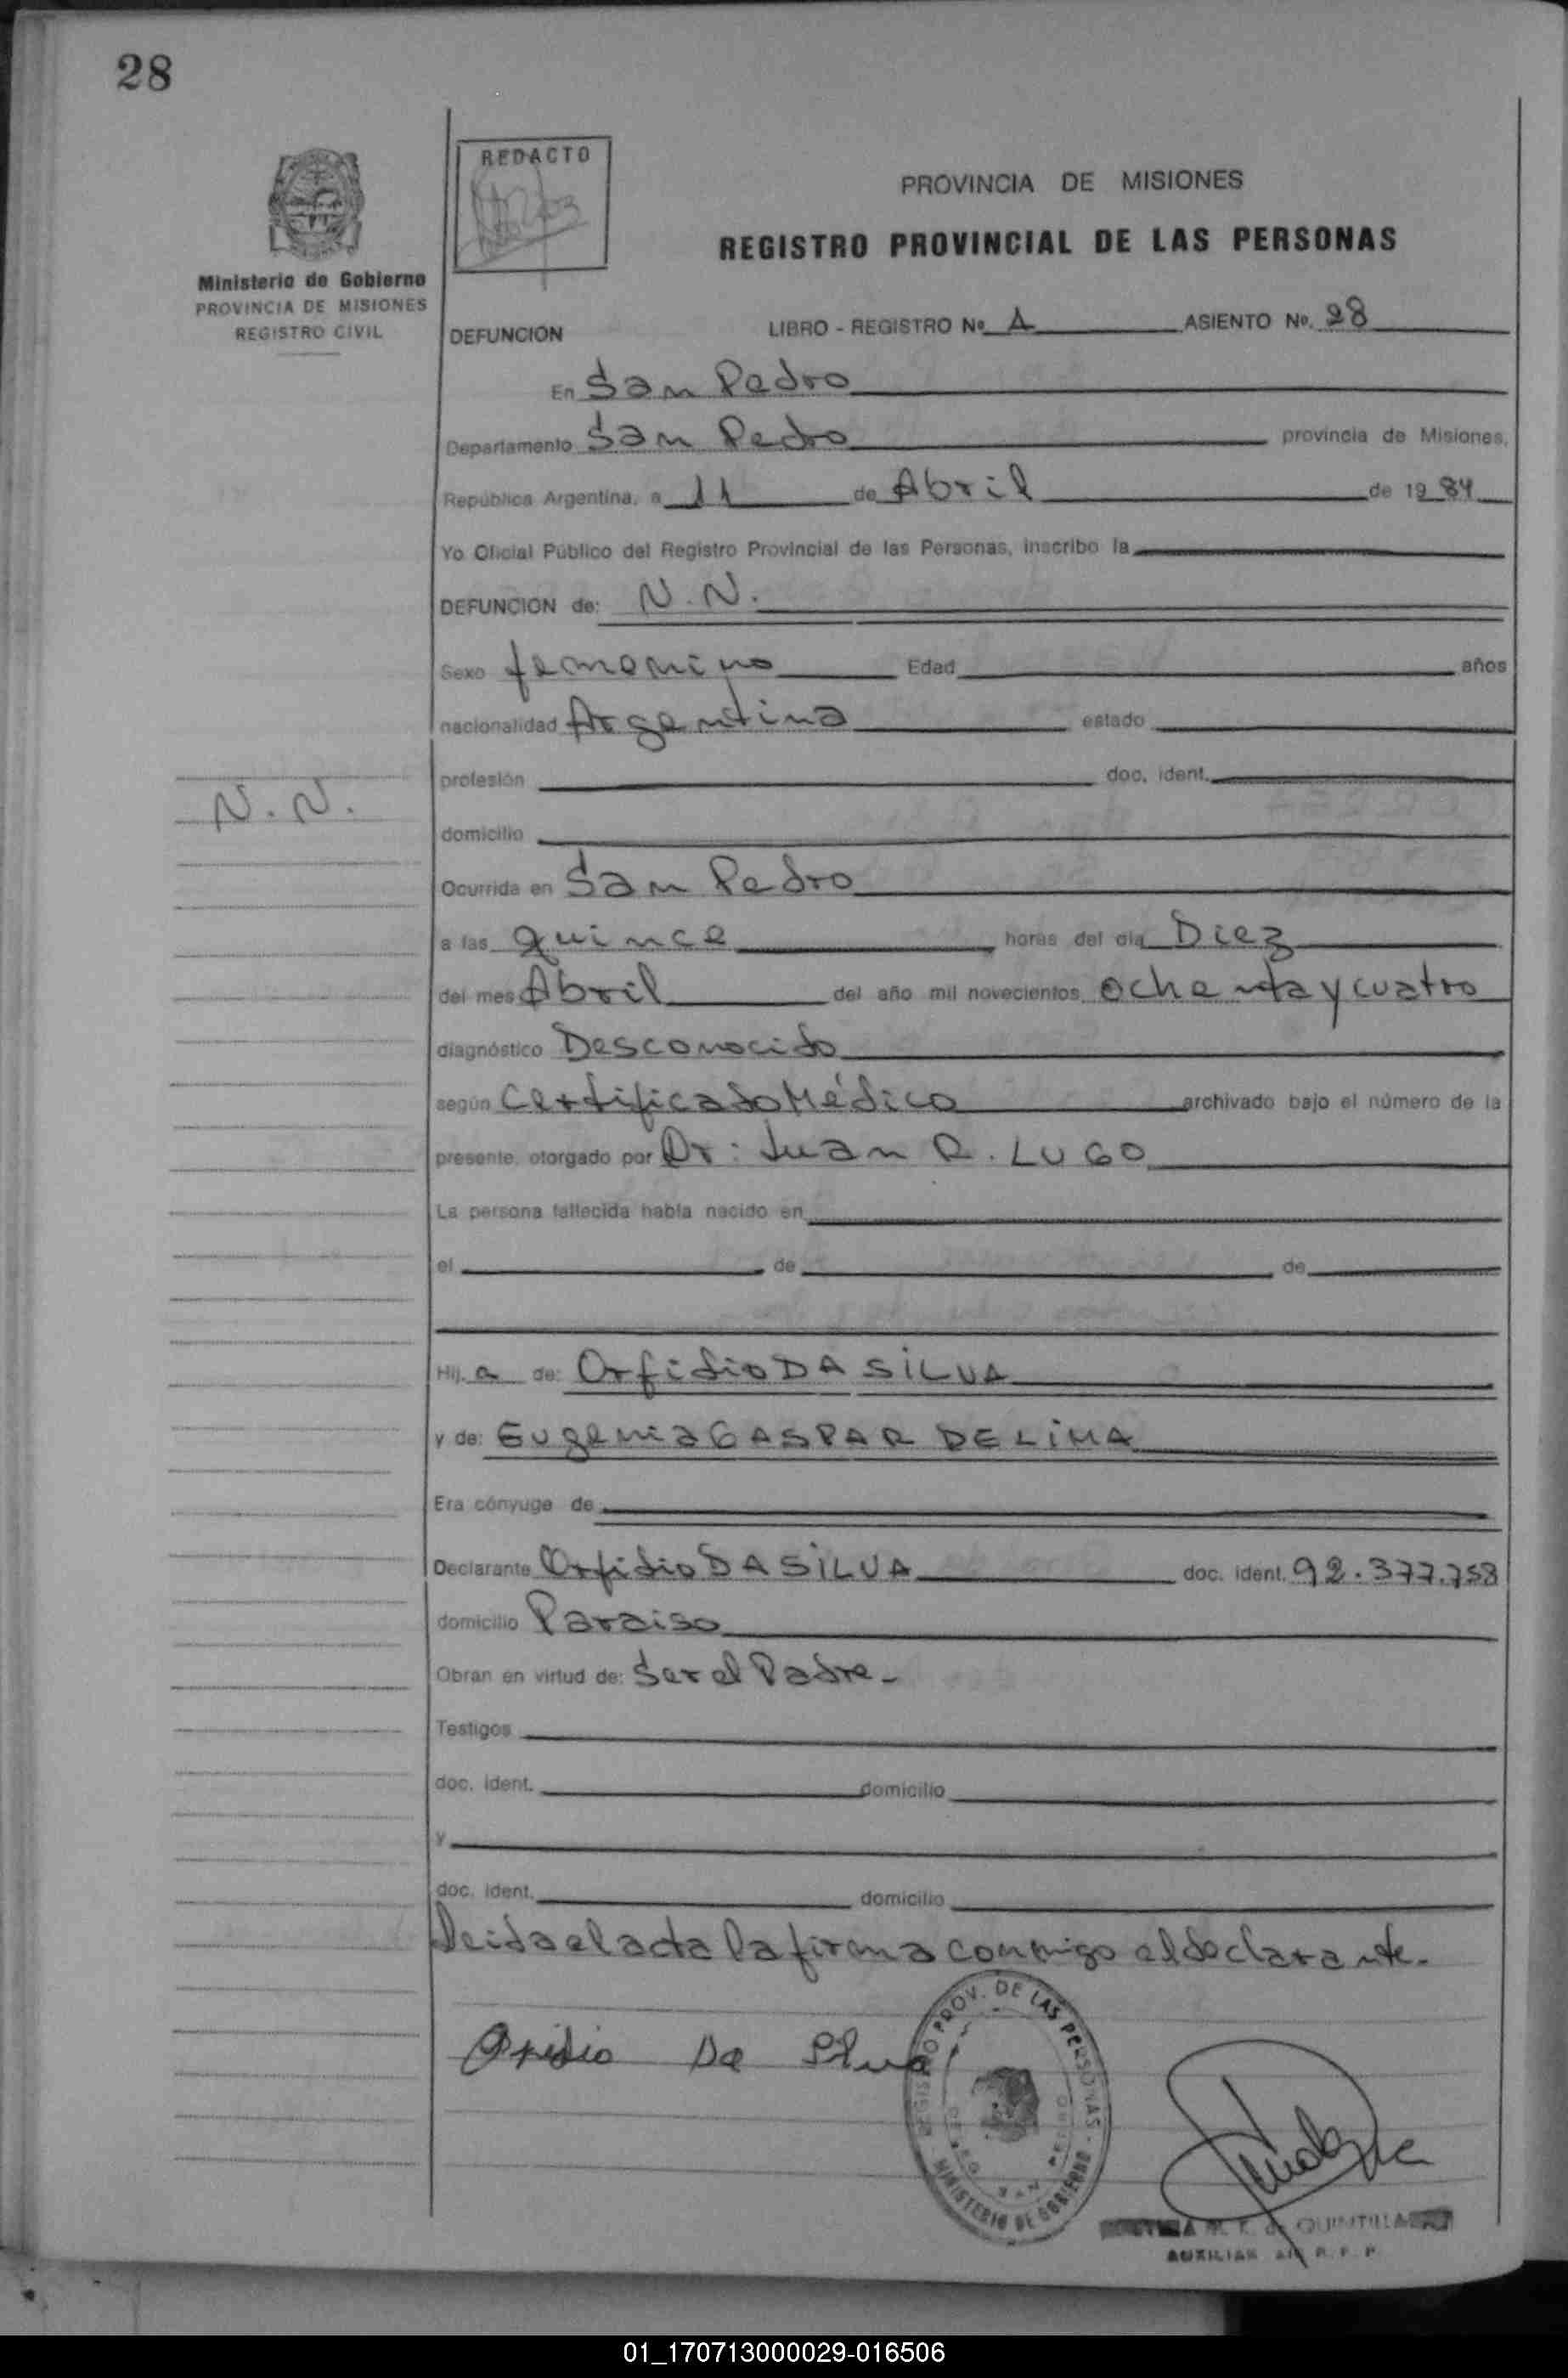 28
REDACTO
PROVINCIA DE MISIONES
REGISTRO PROVINCIAL DE LAS PERSONAS
Ministerio de Gobierno
PROVINCIA DE MISIONES
REGISTRO CIVIL
DEFUNCION LIBRO - REGISTRO Nº A ASIENTO Nº. 28
En San Pedro
Departamento San Pedro provincia de Misiones,
República Argentina, a 11 de Abril de 1984
Yo Oficial Público del Registro Provincial de las Personas, inscribo la
DEFUNCION de: N.N.
Sexo femenino Edad años
nacionalidad Argentina estado
profesión doc. ident.
N.N.
domicilio
Ocurrida en San Pedro
a las quince horas del día Diez
del mes Abril del año mil novecientos ochenta y cuatro
diagnóstico Desconocido
según Certificado Médico archivado bajo el número de la
presente, otorgado por Dr: Juan R. LUGO
La persona fallecida había nacido en
el de de
Hij a de: Orfidio DA SILVA
y de: Eugenia GASPAR DE LIMA
Era cónyuge de
Declarante Orfidio DA SILVA doc. ident. 92.377.758
domicilio Paraiso
Obran en virtud de: Ser el Padre-
Testigos
doc. ident. domicilio
y
doc. ident. domicilio
Leida el acta la firma conmigo el declarante.
Da Silva
REGISTRO PROV. DE LAS PERSONAS - MINISTERIO DE GOBIERNO
QUINTILLA
AUXILIAR R. P. P.
01_170713000029-016506